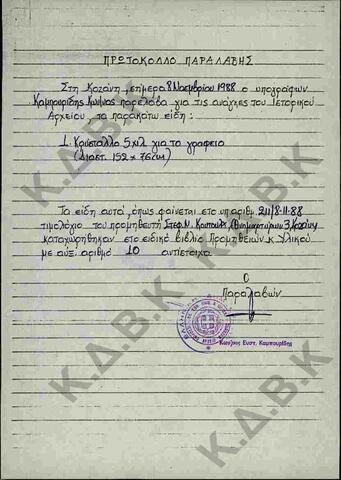 ΠΡΩΤΟΚΟΛΛΟ ΠΑΡΑΛΑΒΗΣ
Στη Κοζάνη, σήμερα 8 Νοεμβρίου 1988 ο υπογράφων
Καμπουρίδης Κων/νος παρέλαβα για τις ανάγκες του Ιστορικού
Αρχείου, τα παρακάτω είδη:
1. Κρύσταλλο 5 χιλ για το γραφείο
(Διαστ. 152 × 76 cm)
Τα είδη αυτά, όπως φαίνεται στο υπ αριθμ. 211/8-11-88
τιμολόγιο του προμηθευτή Στεφ. Ν. Εθνομαρτύρων 3, Κοζάνη
καταχωρήθηκαν στο ειδικό βιβλίο Προμηθειών κ Υλικού
με αύξ. αριθμό 10 αντίστοιχα.
Ο
Παραλαβών
Κων/νος Ευστ. Καμπουρίδης
Κ.Δ.Β.Κ
Κ.Δ.Β.Κ
Κ.Δ.Β.Κ